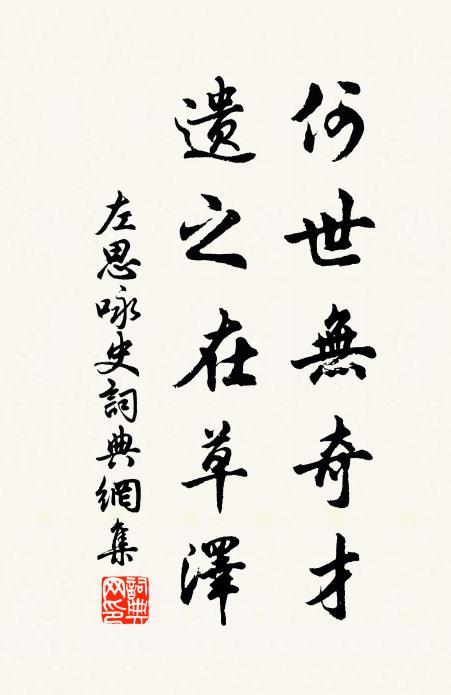 何世無奇才
遺之在草澤
左思咏史詞典網集
詞典网印